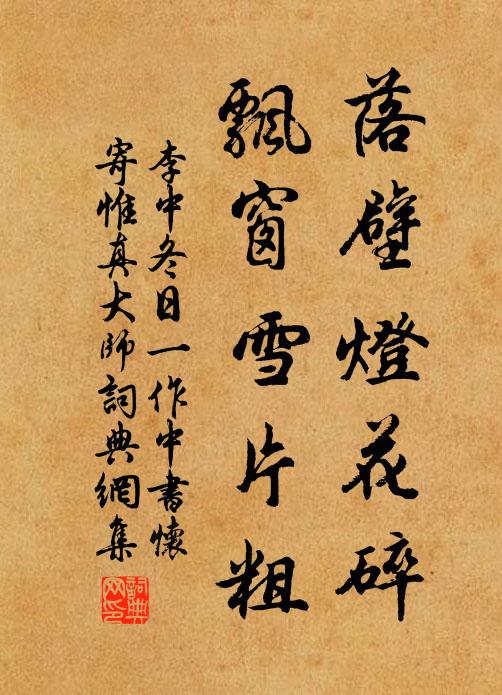 落壁燈花碎
飄窗雪片粗
李中冬日一作中書懷
寄惟真大師詞典網集
詞典
网印